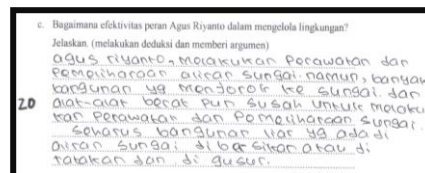 c. Bagaimana efektivitas peran Agus Riyanto dalam mengelola lingkungan?
Jelaskan. (melakukan deduksi dan memberi argumen)
agus riyanto, melakukan perawatan dan
pemeliharaan aliran sungai. namun, banyak
bangunan yg menjorok ke sungai. dan
20 alat-alat berat pun susah untuk melaku
kan perawatan dan pemeliharaan sungai.
seharus bangunan liar yg ada di
aliran sungai di bersihkan atau di
ratakan dan di gusur.